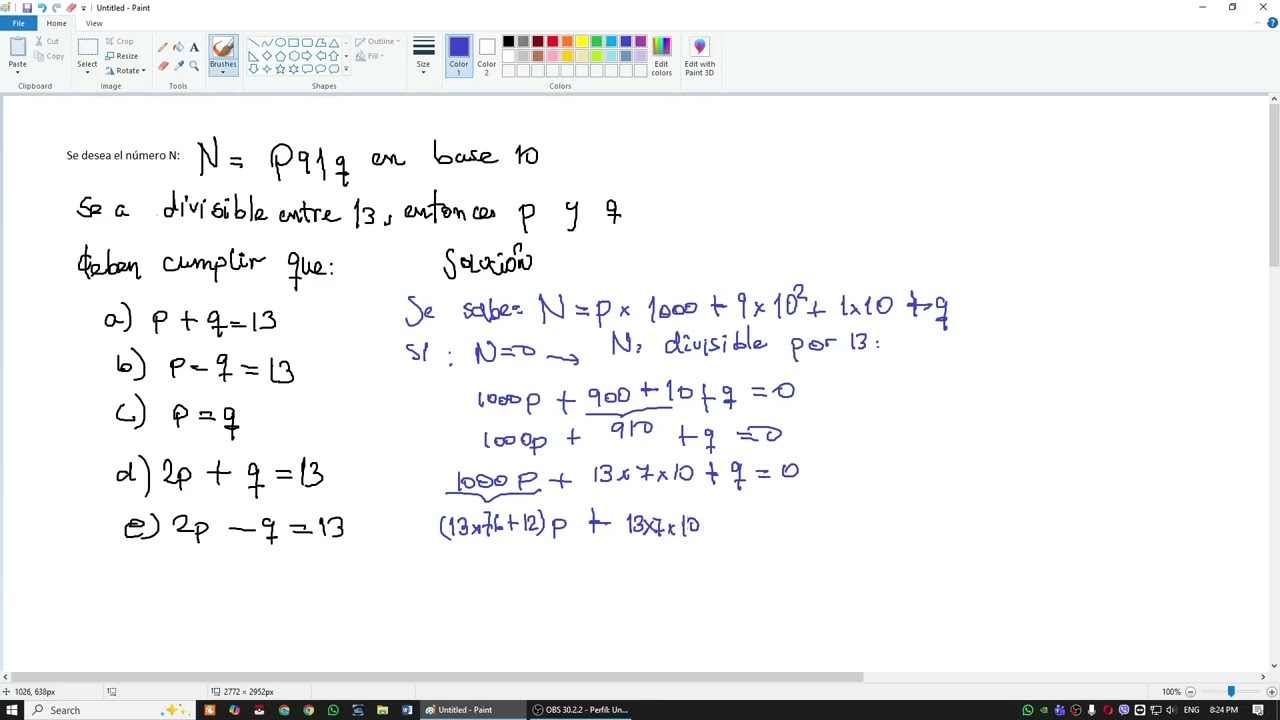 Untitled - Paint
File Home View
Paste Cut Copy Clipboard
Select Crop Resize Rotate Image
Tools
Brushes
Outline Fill Shapes
Size
Color 1 Color 2 Edit colors Colors
Edit with Paint 3D
Se desea el número N: N = p91q en base 10
Sea divisible entre 13, entonces p y q
deben cumplir que:
a) p + q = 13
b) p - q = 13
c) p = q
d) 2p + q = 13
e) 2p - q = 13
Solución
Se sabe: N = p x 1000 + 9 x 10² + 1 x 10 + q
SI: N = 0 → N: divisible por 13:
1000p + 900 + 10 + q = 0
1000p + 910 + q = 0
1000p + 13x7x10 + q = 0
(13x76+12)p + 13x7x10
1026, 638px 2772 × 2952px 100%
Search Untitled - Paint OBS 30.2.2 - Perfil: Un... ENG 8:24 PM